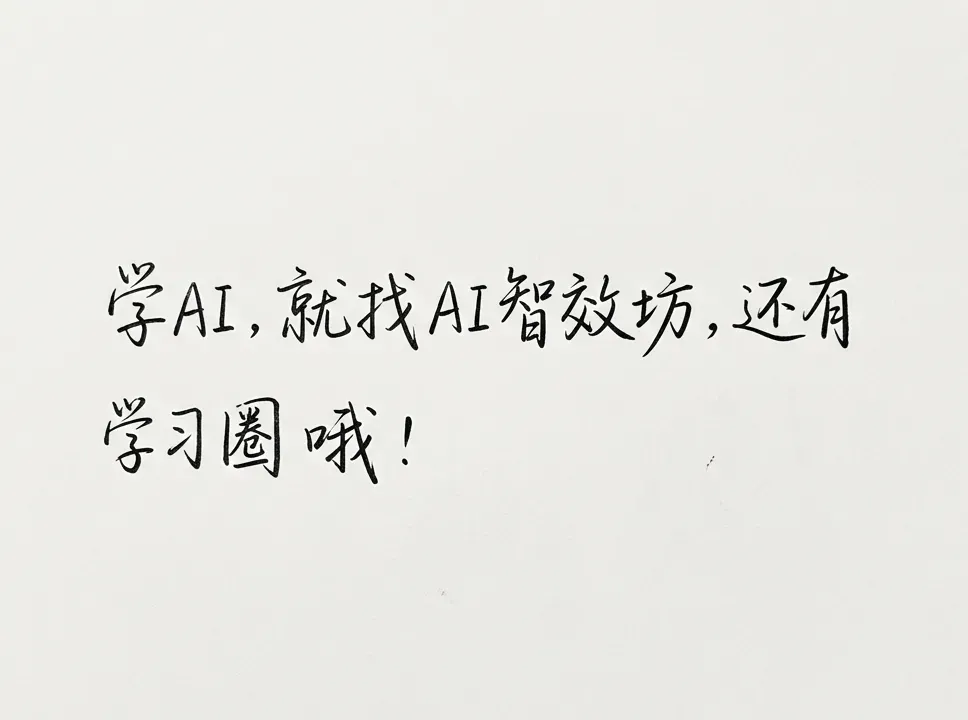 学AI,就找AI智效坊,还有
学习圈哦!